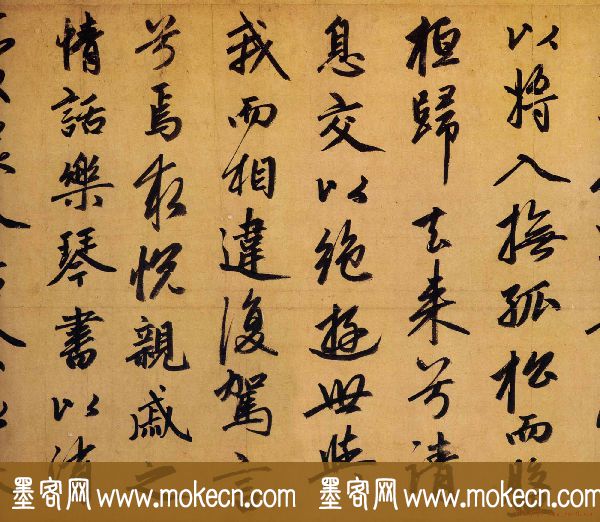 以將入撫孤松而盤
桓歸去来兮請
息交以絶遊世與
我而相違復駕言
兮焉求悅親戚之
情話樂琴書以消
墨客网 www.mokecn.com 墨客网 www.mokecn.com